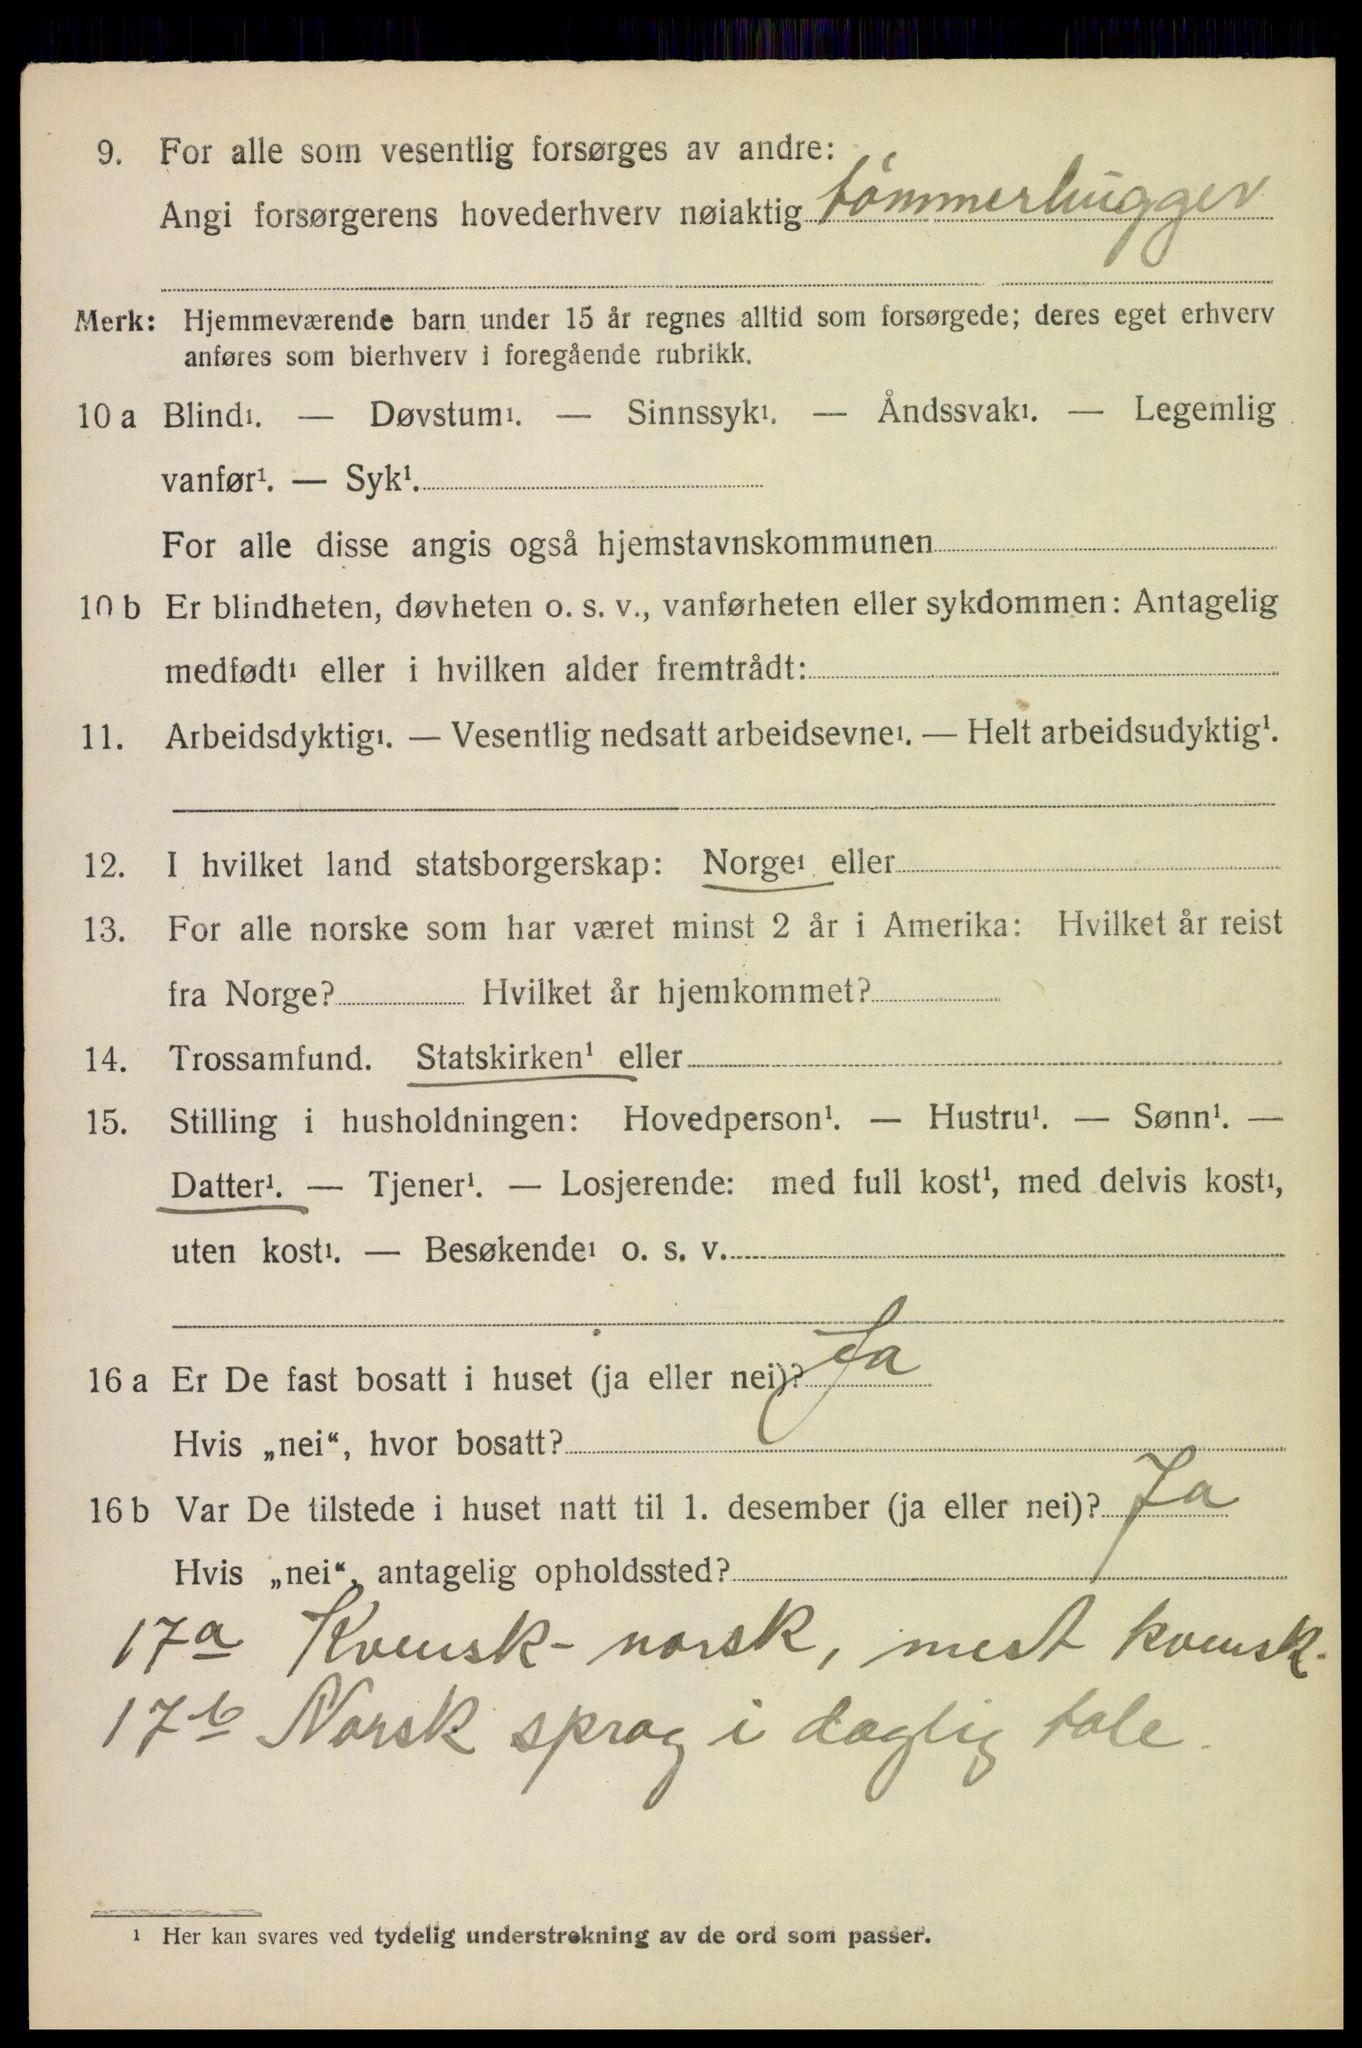 9. For alle som vesentlig forsørges av andre:
Angi forsørgerens hovederhverv nøiaktig tömmerhugger
Merk: Hjemmeværende barn under 15 år regnes alltid som forsørgede; deres eget erhverv
anføres som bierhverv i foregående rubrikk.
10 a Blind¹. — Døvstum¹. — Sinnssyk¹. — Åndssvak¹. — Legemlig
vanfør¹. — Syk¹.
For alle disse angis også hjemstavnskommunen
10 b Er blindheten, døvheten o. s. v., vanførheten eller sykdommen: Antagelig
medfødt¹ eller i hvilken alder fremtrådt:
11. Arbeidsdyktig¹. — Vesentlig nedsatt arbeidsevne¹. — Helt arbeidsudyktig¹.
12. I hvilket land statsborgerskap: Norge¹ eller
13. For alle norske som har været minst 2 år i Amerika: Hvilket år reist
fra Norge? Hvilket år hjemkommet?
14. Trossamfund. Statskirken¹ eller
15. Stilling i husholdningen: Hovedperson¹. — Hustru¹. — Sønn¹. —
Datter¹. — Tjener¹. — Losjerende: med full kost¹, med delvis kost¹,
uten kost¹. — Besøkende¹ o. s. v.
16 a Er De fast bosatt i huset (ja eller nei)? Ja
Hvis „nei“, hvor bosatt?
16 b Var De tilstede i huset natt til 1. desember (ja eller nei)? Ja
Hvis „nei“, antagelig opholdssted?
17a Kvensk-norsk, mest kvensk.
17b Norsk sprog i daglig tale.
¹ Her kan svares ved tydelig understrekning av de ord som passer.